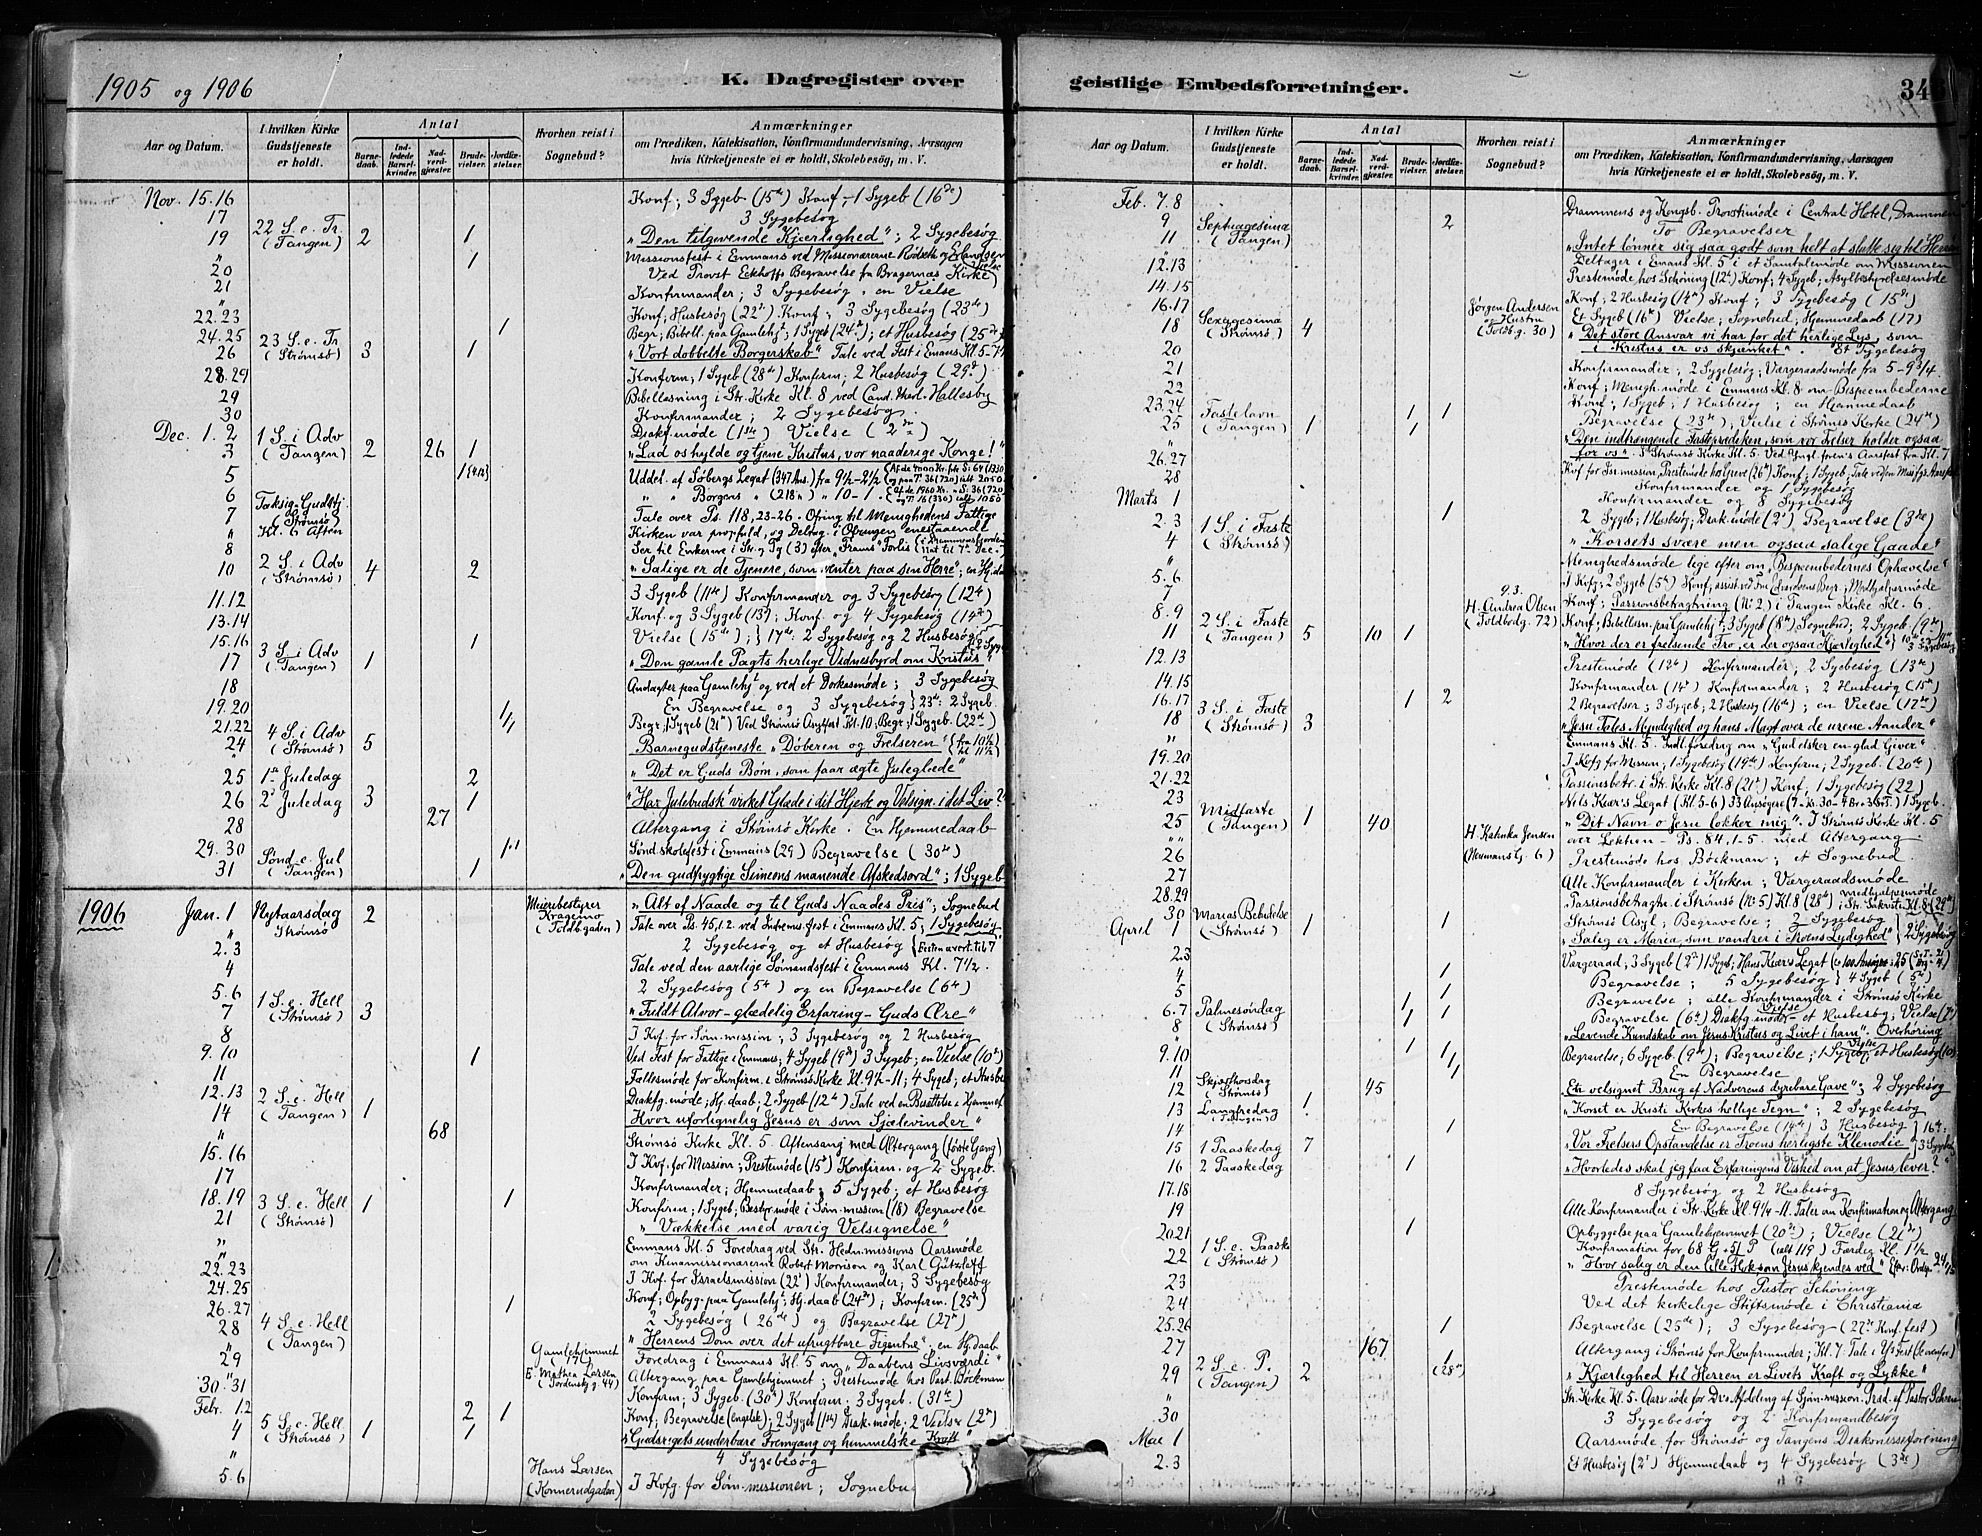 1905 og 1906
K. Dagregister over
Aar og Datum.
I hvilken Kirke Gudstjeneste er holdt.
Antal
Barnedaab.
Indledede Barselkvinder.
Nadverdgjæster.
Brudevielser.
Jordfæstelser.
Hvorhen reist i Sognebud?
Anmærkninger
om Prædiken, Katekisation, Konfirmandundervisning, Aarsagen
hvis Kirketjeneste ei er holdt, Skolebesøg, m. V.
Nov. 15.16 Konf; 3 Sygeb (15de) Konf - 1 Sygeb (16de)
17 3 Sygebesøg
19 22 S. e. Tr. (Tangen) 2 1 "Den tilgivende Kjærlighed"; 2 Sygebesøg
" 1 Missionsfest i Emmaus ved Missionærerne Rødseth og Erlandsen
20 Ved Provst Eckhoffs Begravelse fra Bragernas Kirke
21 Konfirmander; 3 Sygebesøg, en Vielse
22.23 Konf; Husbesøg (22de) Konf; 3 Sygebesøg (23de)
24.25 1 Begr; Bibell. paa Gamlehjt; 1 Sygeb (24de); et Husbesøg (25de)
26 23 S. e. Tr (Strømsø) 3 1 "Vort dobbelte Borgerskab" Tale ved Fest i Emaus Kl. 5-7½
28.29 Konfirm; 1 Sygeb (28de) Konfirm; 2 Husbesøg (29de)
29 Bibellæsning i Str. Kirke Kl. 8 ved Cand. theol. Hallesby
30 Konfirmander; 2 Sygebesøg.
Dec. 1. 2 Diakf. møde (1ste) Vielse (2den)
3 1 S. i Adv (Tangen) 2 26 1 "Lad os hylde og tjene Kristus, vor naaderige Konge!"
5 Uddel. af Søbergs Legat (347 Ans.) fra 9½-2½
6 " " Borgens " (218 ") " 10-1.
7 Taksig. Gudstj (Strømsø) Tale over Ps. 118, 23-26. Ofring til Menighedens Fattige
" Kl. 6 Aften Kirken var propfuld, og Deltag. i Ofringen enestaaende
8 Ser til Enkerne i Str. og Tg (3) efter "Frams" Forlis
10 2 S. i Adv (Strømsø) 4 2 "Salige er de Tjenere, som venter paa sin Herre"; en Hj.daab
11.12 3 Sygeb (11te) Konfirmander og 3 Sygebesøg (12te)
13.14 Konf og 3 Sygeb (13de); Konf. og 4 Sygebesøg (14de)
15.16 1 Vielse (15de); 17de: 2 Sygebesøg og 2 Husbesøg
17 3 S. i Adv (Tangen) 1 "Den gamle Pagts herlige Vidnesbyrd om Kristus"
18 Andagter paa Gamlehjt og ved et Dorkasmøde; 3 Sygebesøg
19.20 En Begravelse og 3 Sygebesøg 23de: 2 Sygeb.
21.22 Begr; 1 Sygeb (21de) Ved Strømsø Asylfest Kl. 10; Begr; 1 Sygeb. (22de)
24 4 S. i Adv (Strømsø) 5 Barnegudstjeneste "Døberen og Frelseren" fra 10½ til 11½
25 1ste Juledag 2 "Det er Guds Børn, som faar ægte Juleglæde"
26 2den Juledag 3 1 "Har Julebudsk. virket Glæde i dit Hjerte og Velsign. i det Liv?"
28 27 Altergang i Strømsø Kirke. En Hjemmedaab
29.30 Sønd.skolefest i Emmaus (29) Begravelse (30te)
31 Sønd e. Jul (Tangen) 1 "Den gudfrygtige Simeons manende Afskedsord"; 1 Sygeb
1906 Jan. 1 Nytaarsdag Strømsø 2 Meieribestyrer Kragemo (Toldbgaden) "Alt af Naade og til Guds Naades Pris"; Sognebud
" Tale over Ps. 45,1.2 ved Indremis.fest i Emmaus Kl. 5; 1 Sygebesøg
2.3 2 Sygebesøg og et Husbesøg
4 Tale ved den aarlige Sømandsfest i Emmaus Kl. 7½.
5.6 2 Sygebesøg (5te) og en Begravelse (6te)
7 1 S. e. Hell (Strømsø) 3 "Fuldt Alvor - glædelig Erfaring - Guds Ære"
8 I Kvf. for Søm.mission; 3 Sygebesøg og 2 Husbesøg
9.10 1 Ved Fest for Fattige i Emmaus; 4 Sygeb (9de) 3 Sygeb; en Vielse (10de)
11 Fællesmøde for Konfirm. i Strømsø Kirke Kl. 9½-11; 4 Sygeb; et Husbes
12.13 Diakfg. møde; Hj.daab; 2 Sygeb (12te)
14 2 S. e. Hell (Tangen) 1 "Hvor uforlignelig Jesus er som Sjælevinder"
" 68 Strømsø Kirke Kl. 5. Aftensang med Altergang (første Gang)
15.16 I Kvf. for Mission; Prestemøde (15de) Konfirm. og 2 Sygeb.
17 Konfirmander; Hjemmedaab; 5 Sygeb; et Husbesøg
18.19 1 Konfirm; 1 Sygeb; Bestyr.møde i Søm.mission (18) Begravelse
21 3 S. e. Hell (Strømsø) 1 "Vækkelse med varig Velsignelse"
" Emmaus Kl. 5 Foredrag ved Str. Hedn.missions Aarsmøde
" om Kinamissionærerne Robert Morrison og Karl Gützlaff
22.23 I Kvf. for Israelsmission (22de) Konfirmander; 3 Sygebesøg
24.25 Konf; Opbyg. paa Gamlehjt; Hj.daab (24de); Konfirm. (25de)
26.27 1 2 Sygebesøg (26de) og Begravelse (27de)
28 4 S. e. Hell (Tangen) "Herrens Dom over det ufrugtbare Figentræ"; en Hj.daab
" Foredrag i Emmaus Kl. 5 om "Daabens Livsværdi"
29 Gamlehjemmet (17) Altergang paa Gamlehjemmet; Prestemøde hos Past. Böckman
30.31 E. Mathea Larsen (Tordenskj.g. 44) Konfirm; 3 Sygeb. (30te) Konfirm. 3 Sygeb. (31te)
Febr. 1.2 2 1 Konf; Begravelse (engelsk); 2 Sygeb (1ste) Diak.møde. 2 Vielser (2den)
4 5 S. e. Hell (Strømsø) 1 1 "Gudsrigets underbare Fremgang og himmelske Kraft"
" 4 Sygebesøg
5.6 Hans Larsen (Konnerudgaden) I Kvfg. for Søm.missionen; Sognebud
geistlige Embedsforretninger.
Aar og Datum.
I hvilken Kirke Gudstjeneste er holdt.
Antal
Barnedaab.
Indledede Barselkvinder.
Nadverdgjæster.
Brudevielser.
Jordfæstelser.
Hvorhen reist i Sognebud?
Anmærkninger
om Prædiken, Katekisation, Konfirmandundervisning, Aarsagen
hvis Kirketjeneste ei er holdt, Skolebesøg, m. V.
Feb. 7.8 Drammens og Kongsb. Provstimøde i Central Hotel, Drammen
9 2 To Begravelser
11 Septuagesima (Tangen) "Intet lønner sig saa godt som helt at slutte sig til Herren"
" Deltager i Emaus Kl. 5 i et Samtalemøde om Missionen
12.13 Prestemøde hos Schöning (12te) Konf; 4 Sygeb; Asylbestyrelsesmøde
14.15 Konf; 2 Husbesøg (14de) Konf; 3 Sygebesøg (15de)
16.17 Jørgen Andersen og Hustru (Toldb.g. 30) Et Sygeb (16de) Vielse; Sognebud; Hjemmedaab (17)
18 Sexagesima (Strømsø) 4 "Det store Ansvar vi har for det herlige Lys, som
i Kristus er os skjænket". Et Sygebesøg
20 Konfirmander; 2 Sygebesøg; Værgeraadsmøde fra 5-9¾
21 Konf; Menigh.møde i Emmaus Kl. 8 om Bispeembederne
22 Konf; 1 Sygeb; 1 Husbesøg; en Hjemmedaab
23.24 1 1 Begravelse (23de); Vielse i Strømsø Kirke (24de)
25 Fastelavn (Tangen) 1 1 "Den indtrængende Fasteprædiken, som vor Frelser holder ogsaa
for os". Strømsø Kirke Kl. 5. Ved Yngl.foren's Aarsfest fra Kl. 7
26.27 Kvf for Isr.mission, Prestemøde
28 Konfirmander og 1 Sygebesøg
Marts 1 Konfirmander og 8 Sygebesøg
2.3 1 2 Sygeb; 1 Husbesøg; Diak.møde (2den) Begravelse (3die)
4 1 S. i Faste (Strømsø) "Korsets svære men ogsaa salige Gaade"
" Menighedsmøde lige efter om "Bispeembedernes Ophævelse"
5.6 1 Kvfg; 2 Sygeb (5te) Konf; assist. ved
7 Konf; Passionsbetragtning (No 2) i Tangen Kirke Kl. 6.
8.9 9.3. H. Andrea Olsen (Toldbodg. 72) Konf; Bibellæsn. paa Gamlehjt; 3 Sygeb (8de) Sognebud; 2 Sygeb (9de)
11 2 S. i Faste (Tangen) 5 10 1 "Hvor der er frelsende Tro, er der ogsaa Kjærlighed"
12.13 Prestemøde (12te) Konfirmander; 2 Sygebesøg (13de)
14.15 Konfirmander (14de) Konfirmander; 2 Husbesøg (15de)
16.17 1 2 2 Begravelser; 3 Sygeb; 2 Husbesg (16de); en Vielse (17de)
18 3 S. i Faste (Strømsø) 3 "Jesu Tales Myndighed og hans Magt over de urene Aander"
" Emmaus Kl. 5. Indl.foredrag om "Gud elsker en glad Giver"
19.20 I Kvfg for Mission; 1 Sygebesøg (19de) Konfirm; 2 Sygeb. (20de)
21.22 Passionsbetr. i Str. Kirke Kl. 8 (21de) Konf; 1 Sygebesøg (22)
23 Nils Kiær's Legat (Kl. 5-6) 33 Ansøgere
25 Midfaste (Tangen) 1 40 "Dit Navn o Jesu lokker mig". I Strømsø Kirke Kl. 5
" over Løkken - Ps. 84, 1-5. med Altergang.
26 H. Kahnka Jensen (Neumans G. 6) Prestemøde hos Böckman; et Sognebud.
27 Alle Konfirmander i Kirken; Værgeraadsmøde
28.29 Passionsbetragtn. i Strømsø (No 5) Kl. 8 (28de) Medhjælpermøde Str. Sakristi Kl. 8 (29de)
30 1 Strømsø Asyl; Begravelse; 2 Sygebesøg
April 1 Marias Bebudelse (Strømsø) 1 "Salig er Maria, som vandrer i Troens Lydighed" 2 Sygebesøg
2.3 Værgeraad; 3 Sygeb (2den) 1 Sygeb; Hans Kiær's Legat
4 1 Begravelse; 5 Sygebesøg 4 Sygeb (5te)
5 1 Begravelse; alle Konfirmander i Strømsø Kirke
6.7 1 1 Begravelse (6te) Diakfg. møde - et Husbesøg; Vielse (7de)
8 Palmesøndag (Strømsø) 1 1 "Levende Kundskab om Jesus Kristus og Livet i ham". Overhøring
9.10 1 1 Begravelse; 6 Sygeb. (9de); Begravelse; 1 Sygeb; et Husbesøg (10de)
11 1 En Begravelse
12 Skjærthorsdag (Strømsø) 45 "En velsignet Brug af Nadverens dyrebare Gave"; 2 Sygebesøg
13 Langfredag (Tangen) 1 "Korset er Kristi Kirkes hellige Tegn"; 2 Sygebesøg
14 1 En Begravelse (14de) 3 Husbesøg
15 1 Paaskedag 7 "Vor Frelsers Opstandelse er Troens herligste Klenodie" 16de: 3 Sygebes
16 2 Paaskedag 1 "Hvorledes skal jeg faa Erfaringens Vished om at Jesus lever?"
17.18 8 Sygebesøg og 2 Husbesøg
19 Alle Konfirmander i Str. Kirke Kl. 9¼-11. Taler om Konfirmation og Altergang
20.21 1 Opbyggelse paa Gamlehjemmet (20de); Vielse (21de)
22 1 S. e. Paaske (Strømsø) Konfirmation for 68 G. + 51 P (ialt 119) Færdig Kl. 1½
"Hvor salig er den lille Flok som Jesus kjendes ved"
23 Prestemøde hos Pastor Schöning
24 Ved det kirkelige Stiftsmøde i Christiania
25.26 1 Begravelse (25de); 3 Sygebesøg - (27de Konf.fest)
27 167 Altergang i Strømsø for Konfirmander; Kl. 7. Tale i Ys Fest (ovenfor)
29 2 S. e. P. (Tangen) 2 1 (28de) "Kjærlighed til Herren er Livets Kraft og Lykke"
" Str. Kirke Kl. 5. Aarsmøde for Dr.'s Afdeling af Sjøm.mission. Præd. af Pastor
30 3 Sygebesøg og 2 Konfirmandbesøg
Mai 1 Aarsmøde for Strømsø og Tangens Diakonisseforening
2.3 Et Husbesøg (2den) Hjemmedaab og 4 Sygebesøg (3die)